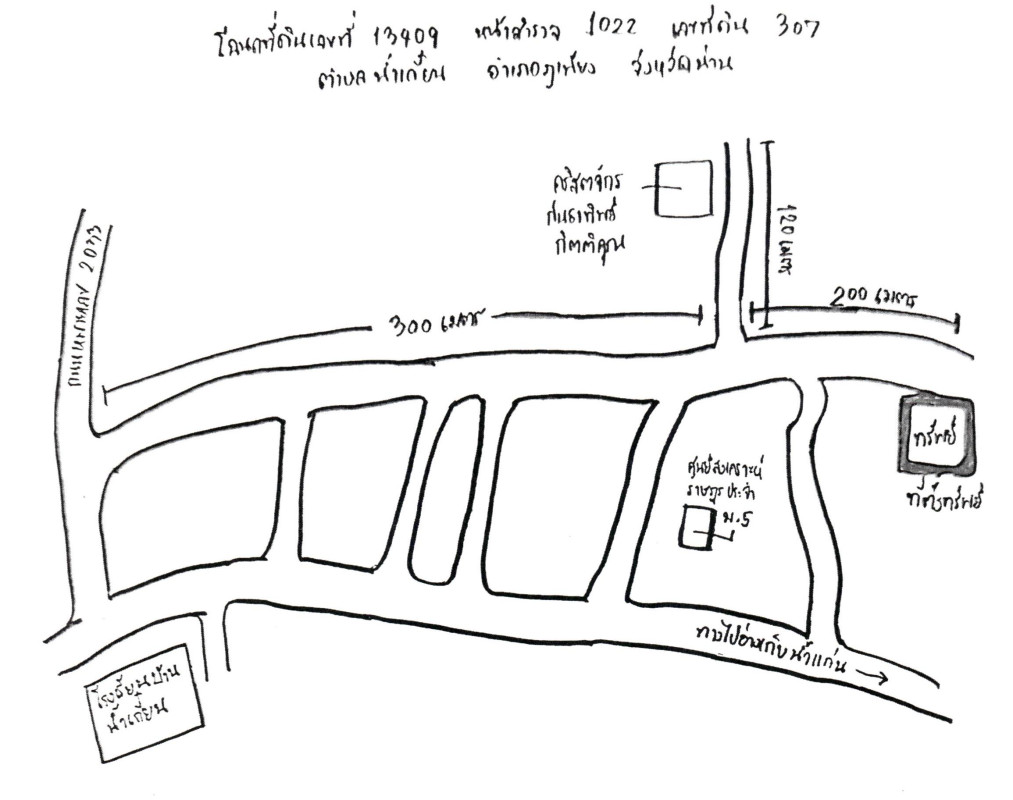 โฉนดที่ดินเลขที่ 13409 หน้าสำรวจ 1022 เลขที่ดิน 307
ตำบลน้ำเกี๋ยน อำเภอภูเพียง จังหวัดน่าน
คริสตจักร
กิตติคุณ
120 เมตร
200 เมตร
300 เมตร
ถนนทางหลวง
ทรัพย์
ที่ตั้งทรัพย์
ศูนย์สงเคราะห์
ราษฎรประจำ
ม.5
ทางไปอ่างเก็บน้ำแก่น
โรงเรียนบ้าน
น้ำเกี๋ยน